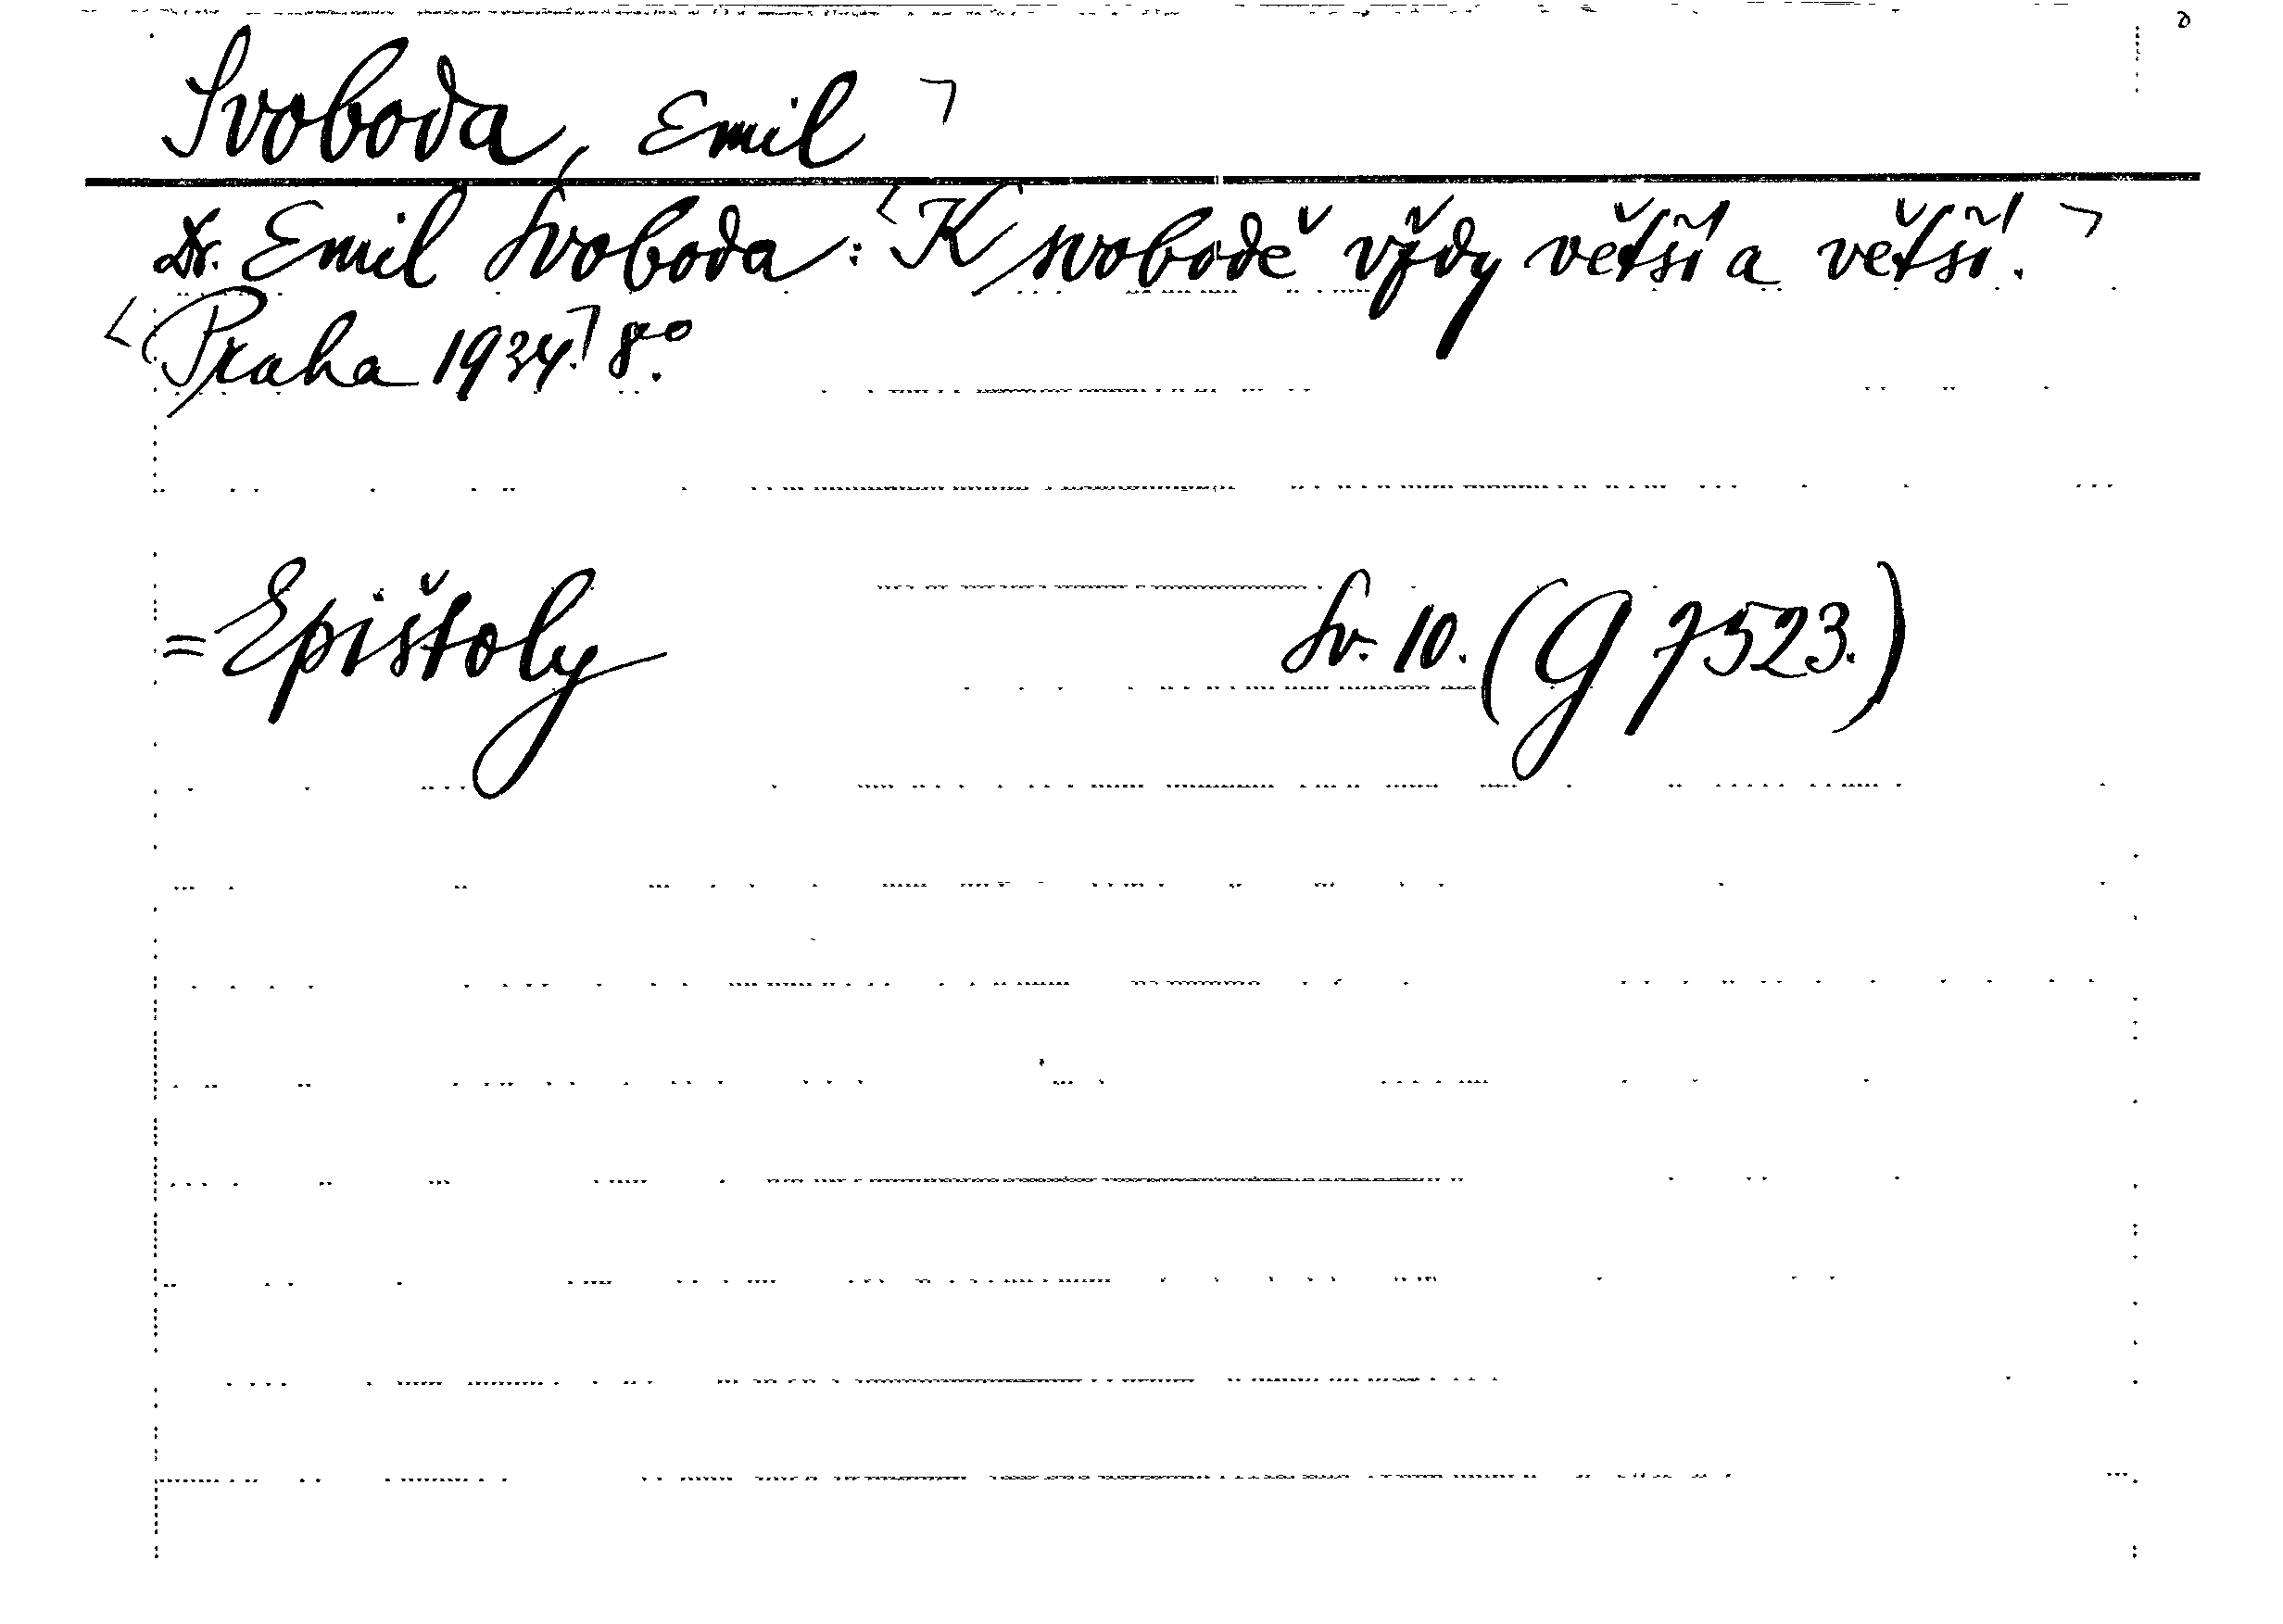 Svoboda, Emil
Dr. Emil Svoboda: K svobodě vždy větší a větší.
Praha 1934. 8°.
= Epištoly Sv. 10. (G 7523.)